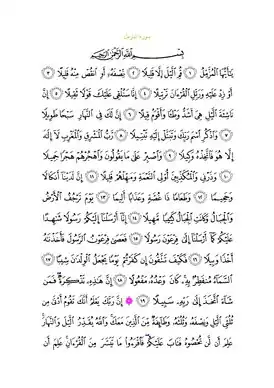 سورة المزمل
بسم الله الرحمن الرحيم
يَٰٓأَيُّهَا ٱلۡمُزَّمِّلُ ١ قُمِ ٱلَّيۡلَ إِلَّا قَلِيلٗا ٢ نِّصۡفَهُۥٓ أَوِ ٱنقُصۡ مِنۡهُ قَلِيلًا ٣
أَوۡ زِدۡ عَلَيۡهِ وَرَتِّلِ ٱلۡقُرۡءَانَ تَرۡتِيلًا ٤ إِنَّا سَنُلۡقِي عَلَيۡكَ قَوۡلٗا ثَقِيلًا ٥ إِنَّ
نَاشِئَةَ ٱلَّيۡلِ هِيَ أَشَدُّ وَطۡـٔٗا وَأَقۡوَمُ قِيلًا ٦ إِنَّ لَكَ فِي ٱلنَّهَارِ سَبۡحٗا طَوِيلٗا
٧ وَٱذۡكُرِ ٱسۡمَ رَبِّكَ وَتَبَتَّلۡ إِلَيۡهِ تَبۡتِيلٗا ٨ رَّبُّ ٱلۡمَشۡرِقِ وَٱلۡمَغۡرِبِ لَآ إِلَٰهَ
إِلَّا هُوَ فَٱتَّخِذۡهُ وَكِيلٗا ٩ وَٱصۡبِرۡ عَلَىٰ مَا يَقُولُونَ وَٱهۡجُرۡهُمۡ هَجۡرٗا جَمِيلٗا
١٠ وَذَرۡنِي وَٱلۡمُكَذِّبِينَ أُوْلِي ٱلنَّعۡمَةِ وَمَهِّلۡهُمۡ قَلِيلًا ١١ إِنَّ لَدَيۡنَآ أَنكَالٗا
وَجَحِيمٗا ١٢ وَطَعَامٗا ذَا غُصَّةٖ وَعَذَابًا أَلِيمٗا ١٣ يَوۡمَ تَرۡجُفُ ٱلۡأَرۡضُ
وَٱلۡجِبَالُ وَكَانَتِ ٱلۡجِبَالُ كَثِيبٗا مَّهِيلًا ١٤ إِنَّآ أَرۡسَلۡنَآ إِلَيۡكُمۡ رَسُولٗا شَٰهِدًا
عَلَيۡكُمۡ كَمَآ أَرۡسَلۡنَآ إِلَىٰ فِرۡعَوۡنَ رَسُولٗا ١٥ فَعَصَىٰ فِرۡعَوۡنُ ٱلرَّسُولَ فَأَخَذۡنَٰهُ
أَخۡذٗا وَبِيلٗا ١٦ فَكَيۡفَ تَتَّقُونَ إِن كَفَرۡتُمۡ يَوۡمٗا يَجۡعَلُ ٱلۡوِلۡدَٰنَ شِيبًا ١٧
ٱلسَّمَآءُ مُنفَطِرُۢ بِهِۦۚ كَانَ وَعۡدُهُۥ مَفۡعُولًا ١٨ إِنَّ هَٰذِهِۦ تَذۡكِرَةٞۖ فَمَن
شَآءَ ٱتَّخَذَ إِلَىٰ رَبِّهِۦ سَبِيلًا ١٩ إِنَّ رَبَّكَ يَعۡلَمُ أَنَّكَ تَقُومُ أَدۡنَىٰ مِن
ثُلُثَيِ ٱلَّيۡلِ وَنِصۡفَهُۥ وَثُلُثَهُۥ وَطَآئِفَةٞ مِّنَ ٱلَّذِينَ مَعَكَۚ وَٱللَّهُ يُقَدِّرُ ٱلَّيۡلَ وَٱلنَّهَارَۚ
عَلِمَ أَن لَّن تُحۡصُوهُ فَتَابَ عَلَيۡكُمۡۖ فَٱقۡرَءُواْ مَا تَيَسَّرَ مِنَ ٱلۡقُرۡءَانِۚ عَلِمَ أَن